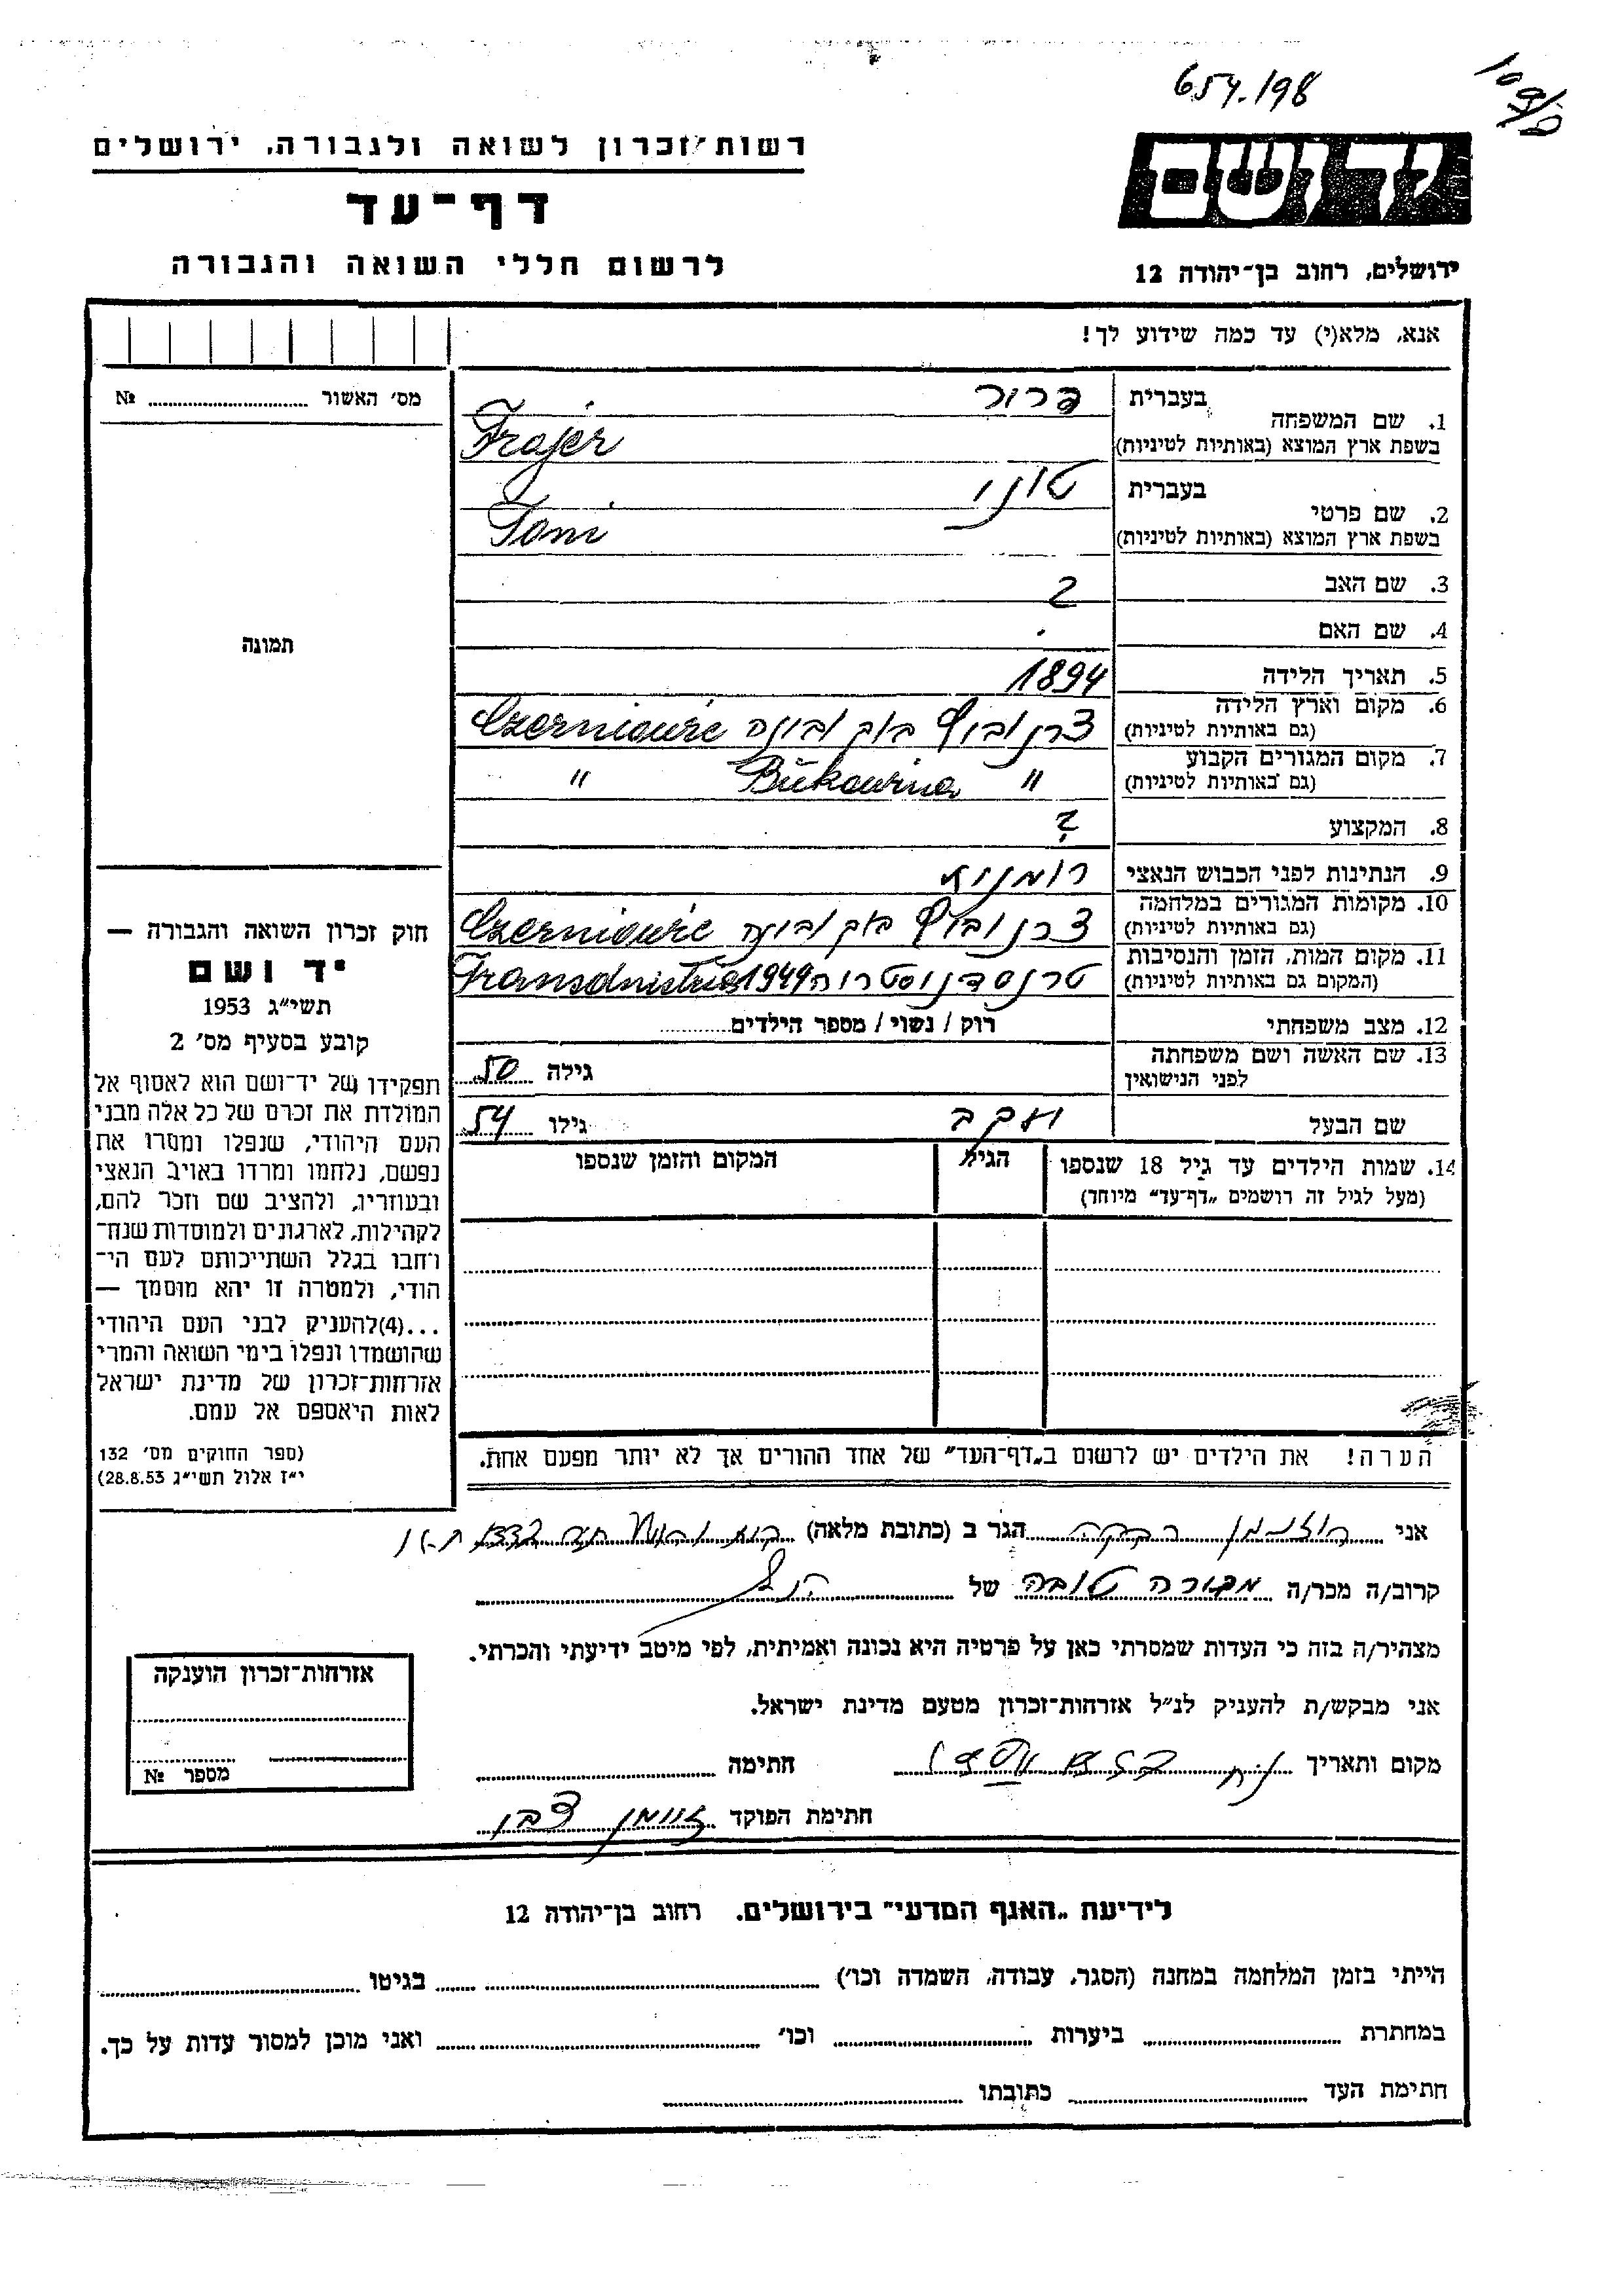 654.198
רשות־זכרון לשואה ולגבורה, ירושלים
יד ושם
דף־עד
לרשום חללי השואה והגבורה
ירושלים, רחוב בן־יהודה 12
אנא, מלא(י) עד כמה שידוע לך!
מס׳ האשור № 
1. שם המשפחה
בעברית
בשפת ארץ המוצא (באותיות לטיניות) Frajer
2. שם פרטי
בעברית טוני
בשפת ארץ המוצא (באותיות לטיניות) Toni
3. שם האב ?
4. שם האם
תמונה
5. תאריך הלידה 1894
6. מקום וארץ הלידה
(גם באותיות לטיניות)
7. מקום המגורים הקבוע
(גם באותיות לטיניות) " Bukowina "
8. המקצוע ?
9. הנתינות לפני הכבוש הנאצי
10. מקומות המגורים במלחמה
(גם באותיות לטיניות)
11. מקום המות, הזמן והנסיבות
(המקום גם באותיות לטיניות) 1944 Transdnistria
12. מצב משפחתי רוק / נשוי / מספר הילדים
13. שם האשה ושם משפחתה
לפני הנישואין גילה 50
שם הבעל גילו 54
14. שמות הילדים עד גיל 18 שנספו
(מעל לגיל זה רושמים „דף־עד״ מיוחד)
הגיל
המקום והזמן שנספו
הערה! את הילדים יש לרשום ב„דף־העד״ של אחד ההורים אך לא יותר מפעם אחת.
חוק זכרון השואה והגבורה —
יד ושם
תשי״ג 1953
קובע בסעיף מס׳ 2
תפקידו של יד־ושם הוא לאסוף אל
המולדת את זכרם של כל אלה מבני
העם היהודי, שנפלו ומסרו את
נפשם, נלחמו ומרדו באויב הנאצי
ובעוזריו, ולהציב שם וזכר להם,
לקהילות, לארגונים ולמוסדות שנח־
רבו בגלל השתייכותם לעם הי־
הודי, ולמטרה זו יהא מוסמך —
...(4)להעניק לבני העם היהודי
שהושמדו ונפלו בימי השואה והמרי
אזרחות־זכרון של מדינת ישראל
לאות היאספם אל עמם.
(ספר החוקים מס׳ 132
י״ז אלול תשי״ג 28.8.53)
אני הגר ב (כתובת מלאה)
קרוב/ה מכר/ה מכרה טובה של
מצהיר/ה בזה כי העדות שמסרתי כאן על פרטיה היא נכונה ואמיתית, לפי מיטב ידיעתי והכרתי.
אני מבקש/ת להעניק לנ״ל אזרחות־זכרון מטעם מדינת ישראל.
מקום ותאריך חתימה
חתימת הפוקד
אזרחות־זכרון הוענקה
מספר №
לידיעת „האגף המדעי״ בירושלים. רחוב בן־יהודה 12
הייתי בזמן המלחמה במחנה (הסגר, עבודה, השמדה וכו׳) בגיטו
במחתרת ביערות וכו׳ ואני מוכן למסור עדות על כך.
חתימת העד כתובתו